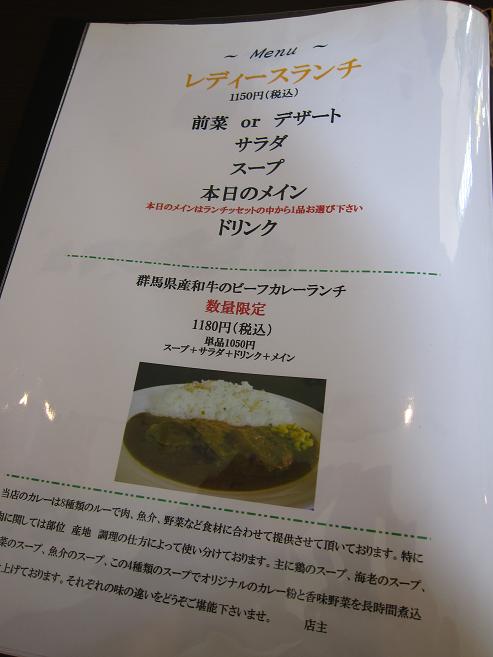 ~ Menu ~
レディースランチ
1150円(税込)
前菜 or デザート
サラダ
スープ
本日のメイン
本日のメインはランチッセットの中から1品お選び下さい
ドリンク
群馬県産和牛のビーフカレーランチ
数量限定
1180円(税込)
単品1050円
スープ+サラダ+ドリンク+メイン
当店のカレーは8種類のルーで肉、魚介、野菜など食材に合わせて提供させて頂いております。特に
に関しては部位 産地 調理の仕方によって使い分けております。主に鶏のスープ、海老のスープ、
菜のスープ、魚介のスープ、この4種類のスープでオリジナルのカレー粉と香味野菜を長時間煮込
上げております。それぞれの味の違いをどうぞご堪能下さいませ。 店主